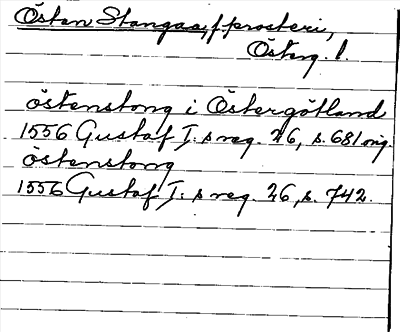 Östan Stangaa, f prosteri,
Österg. l.
östenstong i Östergötland
1556 Gustaf I:s reg. 26, s. 681 orig.
östenstong
1556 Gustaf I:s reg. 26, s. 742.